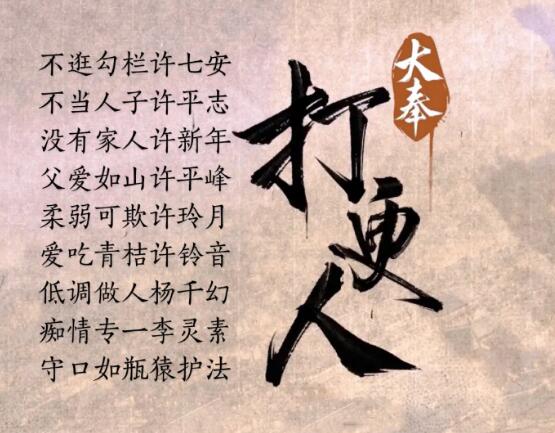 不逛勾栏许七安
不当人子许平志
没有家人许新年
父爱如山许平峰
柔弱可欺许玲月
爱吃青桔许铃音
低调做人杨千幻
痴情专一李灵素
守口如瓶猿护法
大奉
打更人